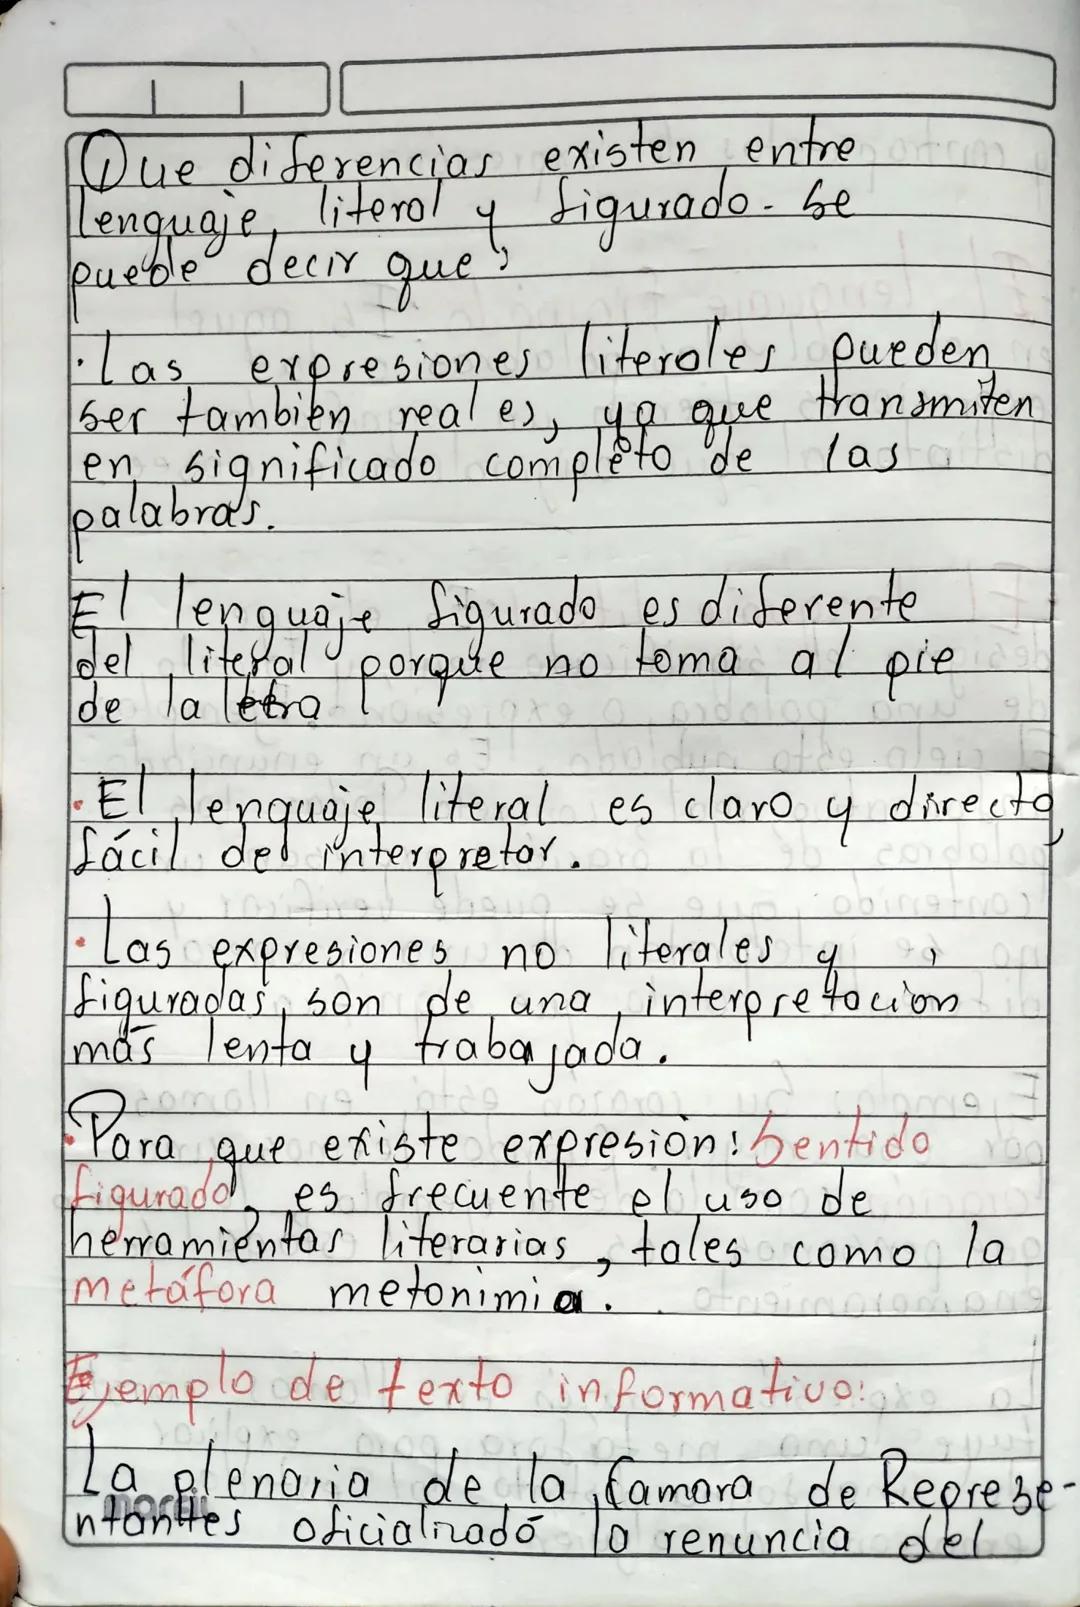 Que diferencias existen entre
lenguaje, literal y figurado. Se
puede decir que,
·Las expresiones literales pueden
ser tambien reales, ya que transmiten
en significado completo de las
palabras.
El lenguaje figurado es diferente
del literal porque no toma al pie
de la letra
·El lenguaje literal es claro y directo,
fácil de interpretar.
·Las expresiones no literales y
figuradas, son de una interpretacion
más lenta y trabajada.
·Para que existe expresión: Sentido
figurado, es frecuente el uso de
herramientas literarias, tales como la
metáfora metonimia.
Ejemplo de texto informativo:
La plenaria de la Camara de Represe-
ntantes oficialirado la renuncia del